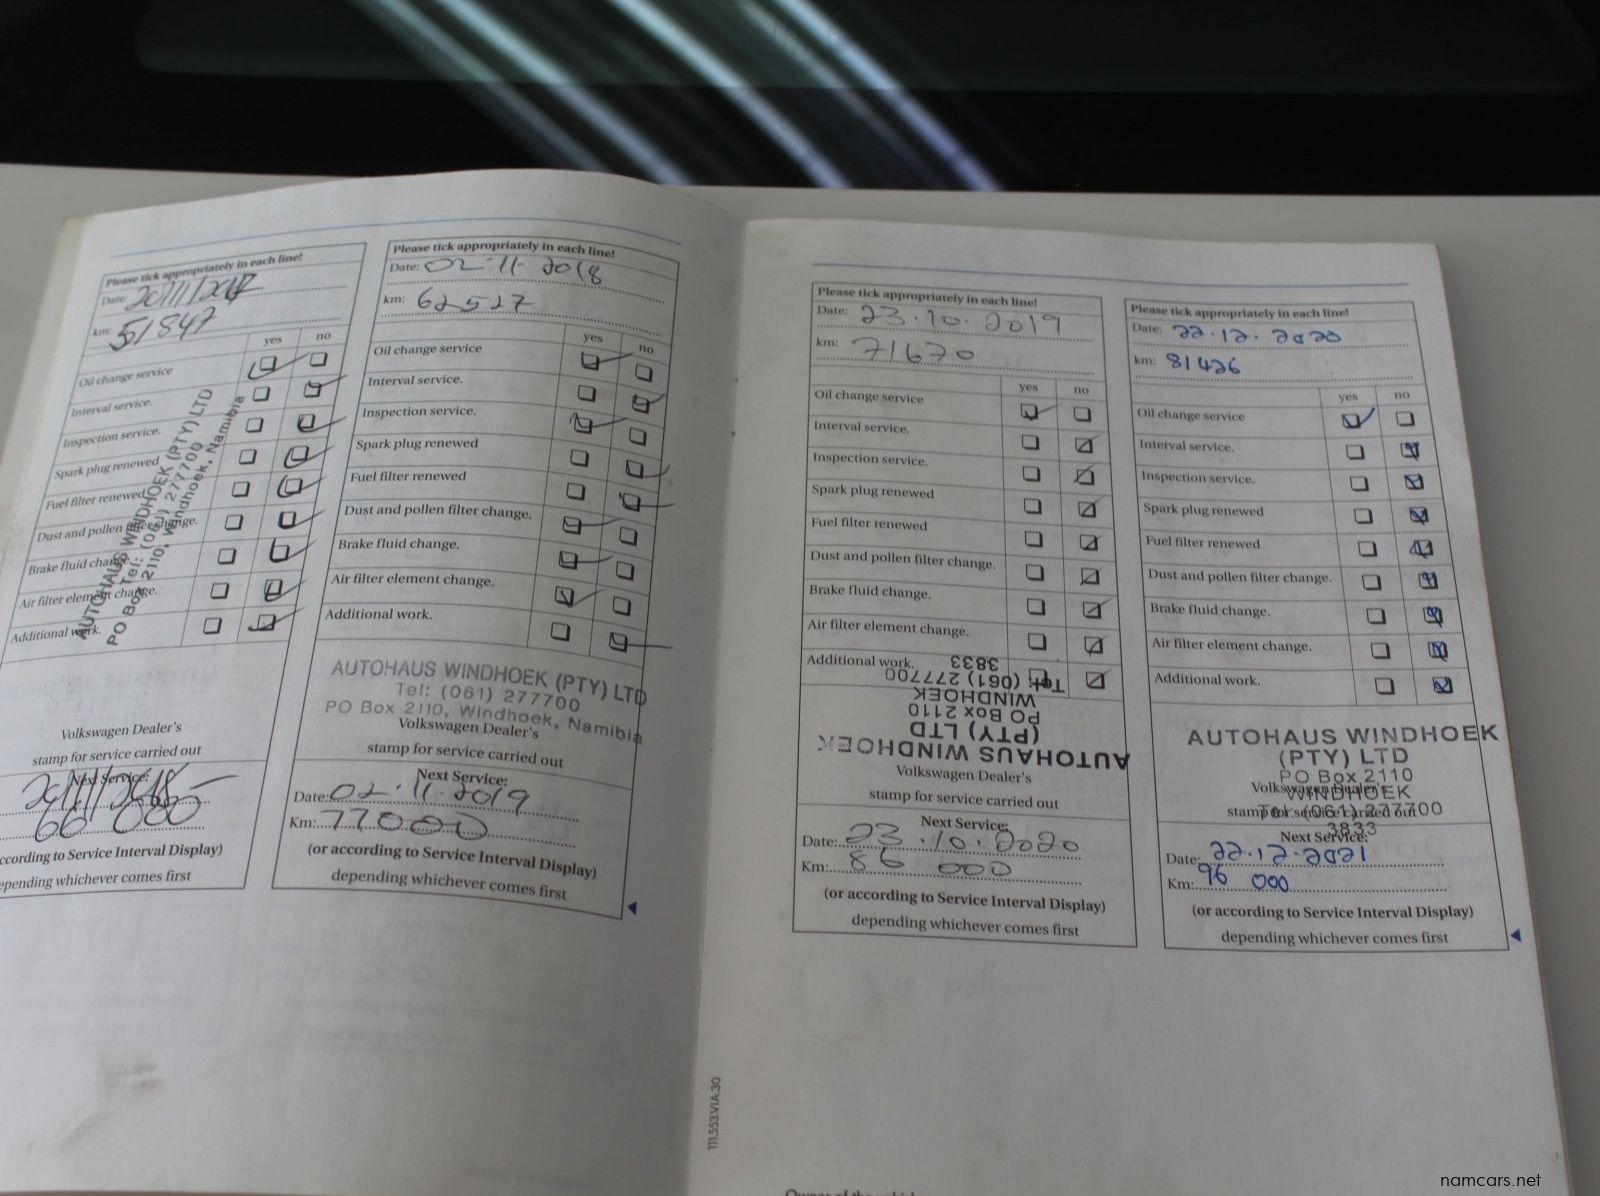 Please tick appropriately in each line!
Date: 20/11/2017
km: 51847
yes no
Oil change service
Interval service.
Inspection service.
Spark plug renewed
Fuel filter renewed
Dust and pollen filter change.
Brake fluid change.
Air filter element change.
Additional work.
AUTOHAUS WINDHOEK (PTY) LTD
Tel: (061) 277700
PO Box 2110, Windhoek, Namibia
Volkswagen Dealer's
stamp for service carried out
Next Service:
20/11/2018
66 000
ccording to Service Interval Display)
epending whichever comes first
Please tick appropriately in each line!
Date: 02-11-2018
km: 62527
yes no
Oil change service
Interval service.
Inspection service.
Spark plug renewed
Fuel filter renewed
Dust and pollen filter change.
Brake fluid change.
Air filter element change.
Additional work.
AUTOHAUS WINDHOEK (PTY) LTD
Tel: (061) 277700
PO Box 2110, Windhoek, Namibia
Volkswagen Dealer's
stamp for service carried out
Next Service:
Date: 02.11.2019
Km: 77000
(or according to Service Interval Display)
depending whichever comes first
Please tick appropriately in each line!
Date: 23.10.2019
km: 71670
yes no
Oil change service
Interval service.
Inspection service.
Spark plug renewed
Fuel filter renewed
Dust and pollen filter change.
Brake fluid change.
Air filter element change.
Additional work.
AUTOHAUS WINDHOEK
(PTY) LTD
PO Box 2110
WINDHOEK
Tel: (061) 277700
3833
Volkswagen Dealer's
stamp for service carried out
Next Service:
Date: 23.10.2020
Km: 86 000
(or according to Service Interval Display)
depending whichever comes first
Please tick appropriately in each line!
Date: 22.12.2020
km: 81426
yes no
Oil change service
Interval service.
Inspection service.
Spark plug renewed
Fuel filter renewed
Dust and pollen filter change.
Brake fluid change.
Air filter element change.
Additional work.
AUTOHAUS WINDHOEK
(PTY) LTD
PO Box 2110
WINDHOEK
Tel: (061) 277700
3833
Volkswagen Dealer's
stamp for service carried out
Next Service:
Date: 22.12.2021
Km: 96 000
(or according to Service Interval Display)
depending whichever comes first
111.553.VIA.30
namcars.net